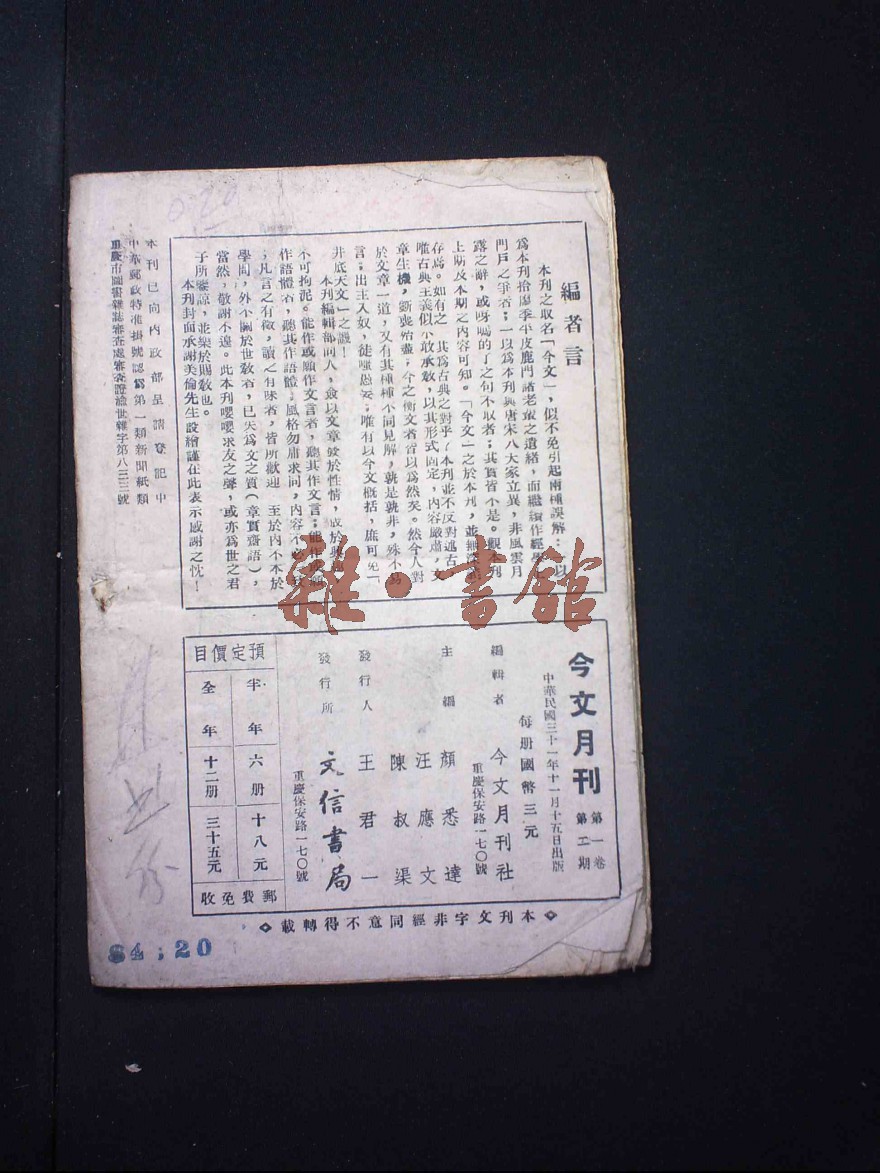 編者言
本刊之取名「今文」,似不免引起兩種誤解:一以
為本刊拾廖季平皮鹿門諸老輩之遺緒,而繼續作經學
門戶之爭者;一以為本刊與唐宋八大家立異,非風雲月
露之辭,或呀嗎的了之句不取者;其實皆不是。觀本刊
上期及本期之內容可知。「今文」之於本刊,並無深意
存焉。如有之 其為古典之對乎?本刊並不反對述古,
唯古典主義似不敢承教,以其形式固定,內容嚴肅,文
章生機,斲喪殆盡,今之衡文者皆以為然矣。然今人對
於文章一道,又有其種種不同見解,就是就非,殊不易
言;出主入奴,徒增愚妄;唯有以今文概括,庶可免「
井底天文」之譏!
本刊編輯部同人,僉以文章發於性情,或於興
不可拘泥。能作或願作文言者,聽其作文言;能作或願
作語體者,聽其作語體。風格勿庸求同,內容不必
;凡言之有徵,讀之有味者,皆所歡迎 至於內不本於
學問,外不關於世教者,已失為文之質(章實齋語),
當然,敬謝不遑。此本刊嚶嚶求友之聲,或亦為世之君
子所鑒諒,並樂於賜教也。
本刊封面承謝美倫先生設繪謹在此表示感謝之忱!
本刊已向內政部呈請登記中
中華郵政特准掛號認為第一類新聞紙類
重慶市圖書雜誌審查處審查證渝世雜字第八三三號
今文月刊
第一卷
第二期
中華民國三十一年十一月十五日出版
每册國幣三元
編輯者 今文月刊社
重慶保安路一七〇號
主編 顏悉達
汪應文
陳叔渠
發行人 王君一
發行所 文信書局
重慶保安路一七〇號
預定價目
半年 六册 十八元
全年 十二册 三十五元
郵費免收
◇本刊文字非經同意不得轉載◇
雜·書館
84;20